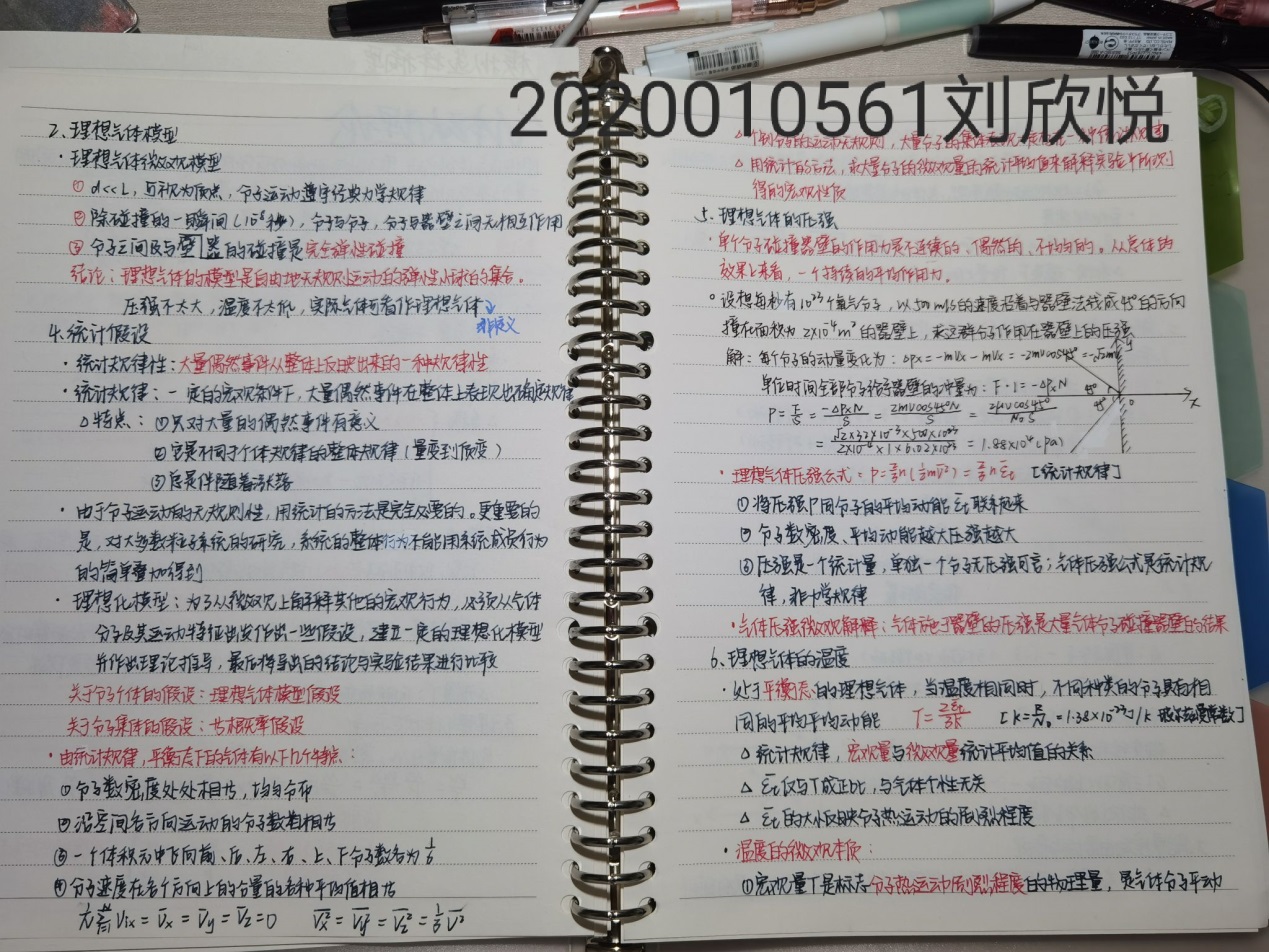 2020010561刘欣悦
2、理想气体模型
·理想气体微观模型
① d<<L，可视为质点，分子运动遵守经典力学规律
② 除碰撞的一瞬间（10⁻⁸秒），分子与分子，分子与器壁之间无相互作用
③ 分子之间及与壁器的碰撞是完全弹性碰撞
结论：理想气体的模型是自由地无规则运动的弹性小球的集合。
压强不太大，温度不太低，实际气体可看作理想气体
非定义
4、统计假设
·统计规律性：大量偶然事件从整体上反映出来的一种规律性
·统计规律：一定的宏观条件下，大量偶然事件在整体上表现出确定规律
△特点：①只对大量的偶然事件有意义
②它是不同于个体规律的整体规律（量变到质变）
③总是伴随着涨落
·由于分子运动的无规则性，用统计的方法是完全必要的。更重要的
是，对大多数粒子系统的研究，系统的整体行为不能用系统成员行为
的简单叠加得到
·理想化模型：为了从微观上解释其他的宏观行为，必须从气体
分子及其运动特征出发作出一些假设，建立一定的理想化模型
并作出理论推导，最后将导出的结论与实验结果进行比较
关于分子个体的假设：理想气体模型假设
关于分子集体的假设：等概率假设
·由统计规律，平衡态下的气体有以下几个特点：
①分子数密度处处相等，均匀分布
②沿空间各方向运动的分子数相等
③一个体积元中飞向前、后、左、右、上、下分子数各为1/6
④分子速度在各个方向上的分量的各种平均值相等
Vix = V̄x = V̄y = V̄z = 0 V̄x² = V̄y² = V̄z² = 1/3 V̄²
△个别分子的运动无规则，大量分子的集体表现
△用统计的方法，求大量分子的微观量的统计平均值来解释实验中所观测
得的宏观性质
5、理想气体的压强
·单个分子碰撞器壁的作用力是不连续的、偶然的、不均匀的。从总体的
效果上来看，一个持续的平均作用力。
°设想每秒有10²³个氧气分子，以500m/s的速度沿着与器壁法线成45°的方向
撞在面积为2×10⁻⁴m²的器壁上，求这群分子作用在器壁上的压强
解：每个分子的动量变化为：△px=-mVx-mVx=-2mvcos45°=-√2mv
y
单位时间全部分子给予器壁的冲量为：F·1=-△PxN
45° 45° o x
P=F/S=-△PxN/S=2mvcos45°N/S=2μvcos45°/N₀S
=√2×32×10⁻³×500×10²³/2×10⁻⁴×1×6.02×10²³=1.88×10⁴(pa)
·理想气体压强公式：P=2/3n(1/2mv̄²)=2/3nε̄t [统计规律]
①将压强P同分子的平均动能ε̄t联系起来
②分子数密度、平均动能越大压强越大
③压强是一个统计量，单独一个分子无压强可言；气体压强公式是统计规
律，非力学规律
·气体压强微观解释：气体施于器壁的压强是大量气体分子碰撞器壁的结果
6、理想气体的温度
·处于平衡态的理想气体，当温度相同时，不同种类的分子具有相
同的平均平均动能 T=2ε̄t/3k [k=R/N₀=1.38×10⁻²³J/K 玻尔兹曼常数]
△统计规律，宏观量与微观量统计平均值的关系
△ε̄t仅与T成正比，与气体个性无关
△ε̄t的大小反映分子热运动的剧烈程度
·温度的微观本质：
①宏观量T是标志分子热运动剧烈程度的物理量，是气体分子平动